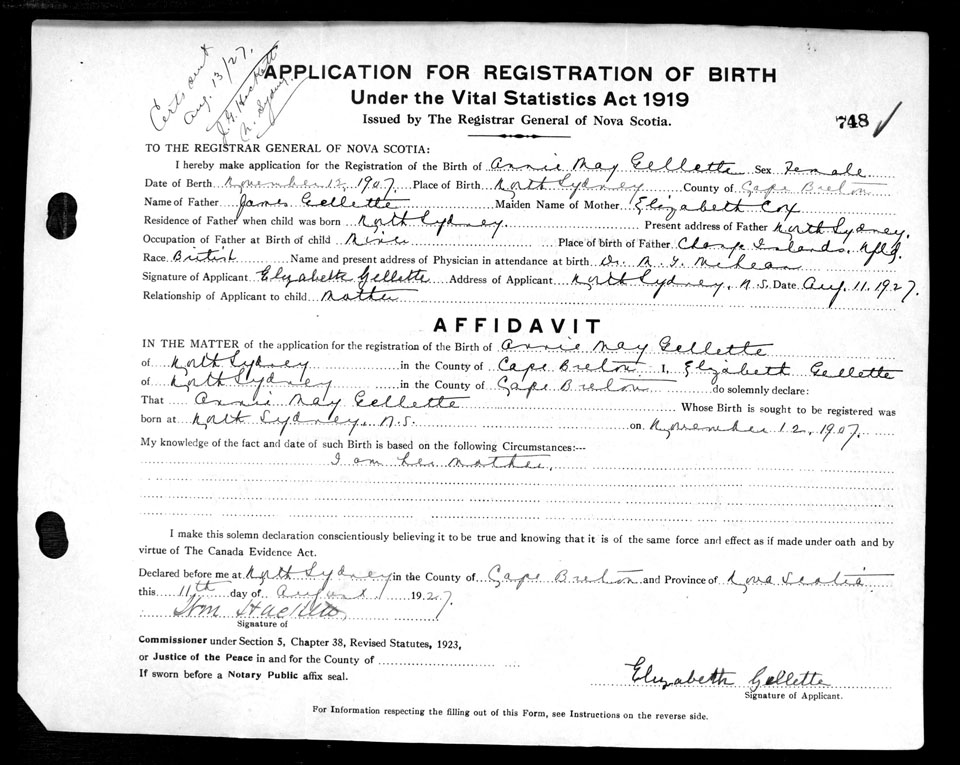 Certs out
Aug. 13/27.
J. G. Hackett
N. Sydney.
APPLICATION FOR REGISTRATION OF BIRTH
Under the Vital Statistics Act 1919
Issued by The Registrar General of Nova Scotia.
748
TO THE REGISTRAR GENERAL OF NOVA SCOTIA:
I hereby make application for the Registration of the Birth of Annie May Gellette Sex Female
Date of Berth November 12, 1907. Place of Birth North Sydney County of Cape Breton
Name of Father James Gellette Maiden Name of Mother Elizabeth Cox
Residence of Father when child was born North Sydney. Present address of Father North Sydney.
Occupation of Father at Birth of child Miner Place of birth of Father Change Islands. Nfld.
Race British Name and present address of Physician in attendance at birth Dr.
Signature of Applicant Elizabeth Gellette Address of Applicant North Sydney, N.S. Date Aug. 11. 1927.
Relationship of Applicant to child Mother
AFFIDAVIT
IN THE MATTER of the application for the registration of the Birth of Annie May Gellette
of North Sydney in the County of Cape Breton I, Elizabeth Gellette
of North Sydney in the County of Cape Breton do solemnly declare:
That Annie May Gellette Whose Birth is sought to be registered was
born at North Sydney, N.S. on November 12, 1907.
My knowledge of the fact and date of such Birth is based on the following Circumstances:---
I am her mother.
I make this solemn declaration conscientiously believing it to be true and knowing that it is of the same force and effect as if made under oath and by
virtue of The Canada Evidence Act.
Declared before me at North Sydney in the County of Cape Breton and Province of Nova Scotia
this 11th day of August 1927.
Wm Hackett
Signature of
Commissioner under Section 5, Chapter 38, Revised Statutes, 1923,
or Justice of the Peace in and for the County of
If sworn before a Notary Public affix seal.
Elizabeth Gellette
Signature of Applicant.
For Information respecting the filling out of this Form, see Instructions on the reverse side.